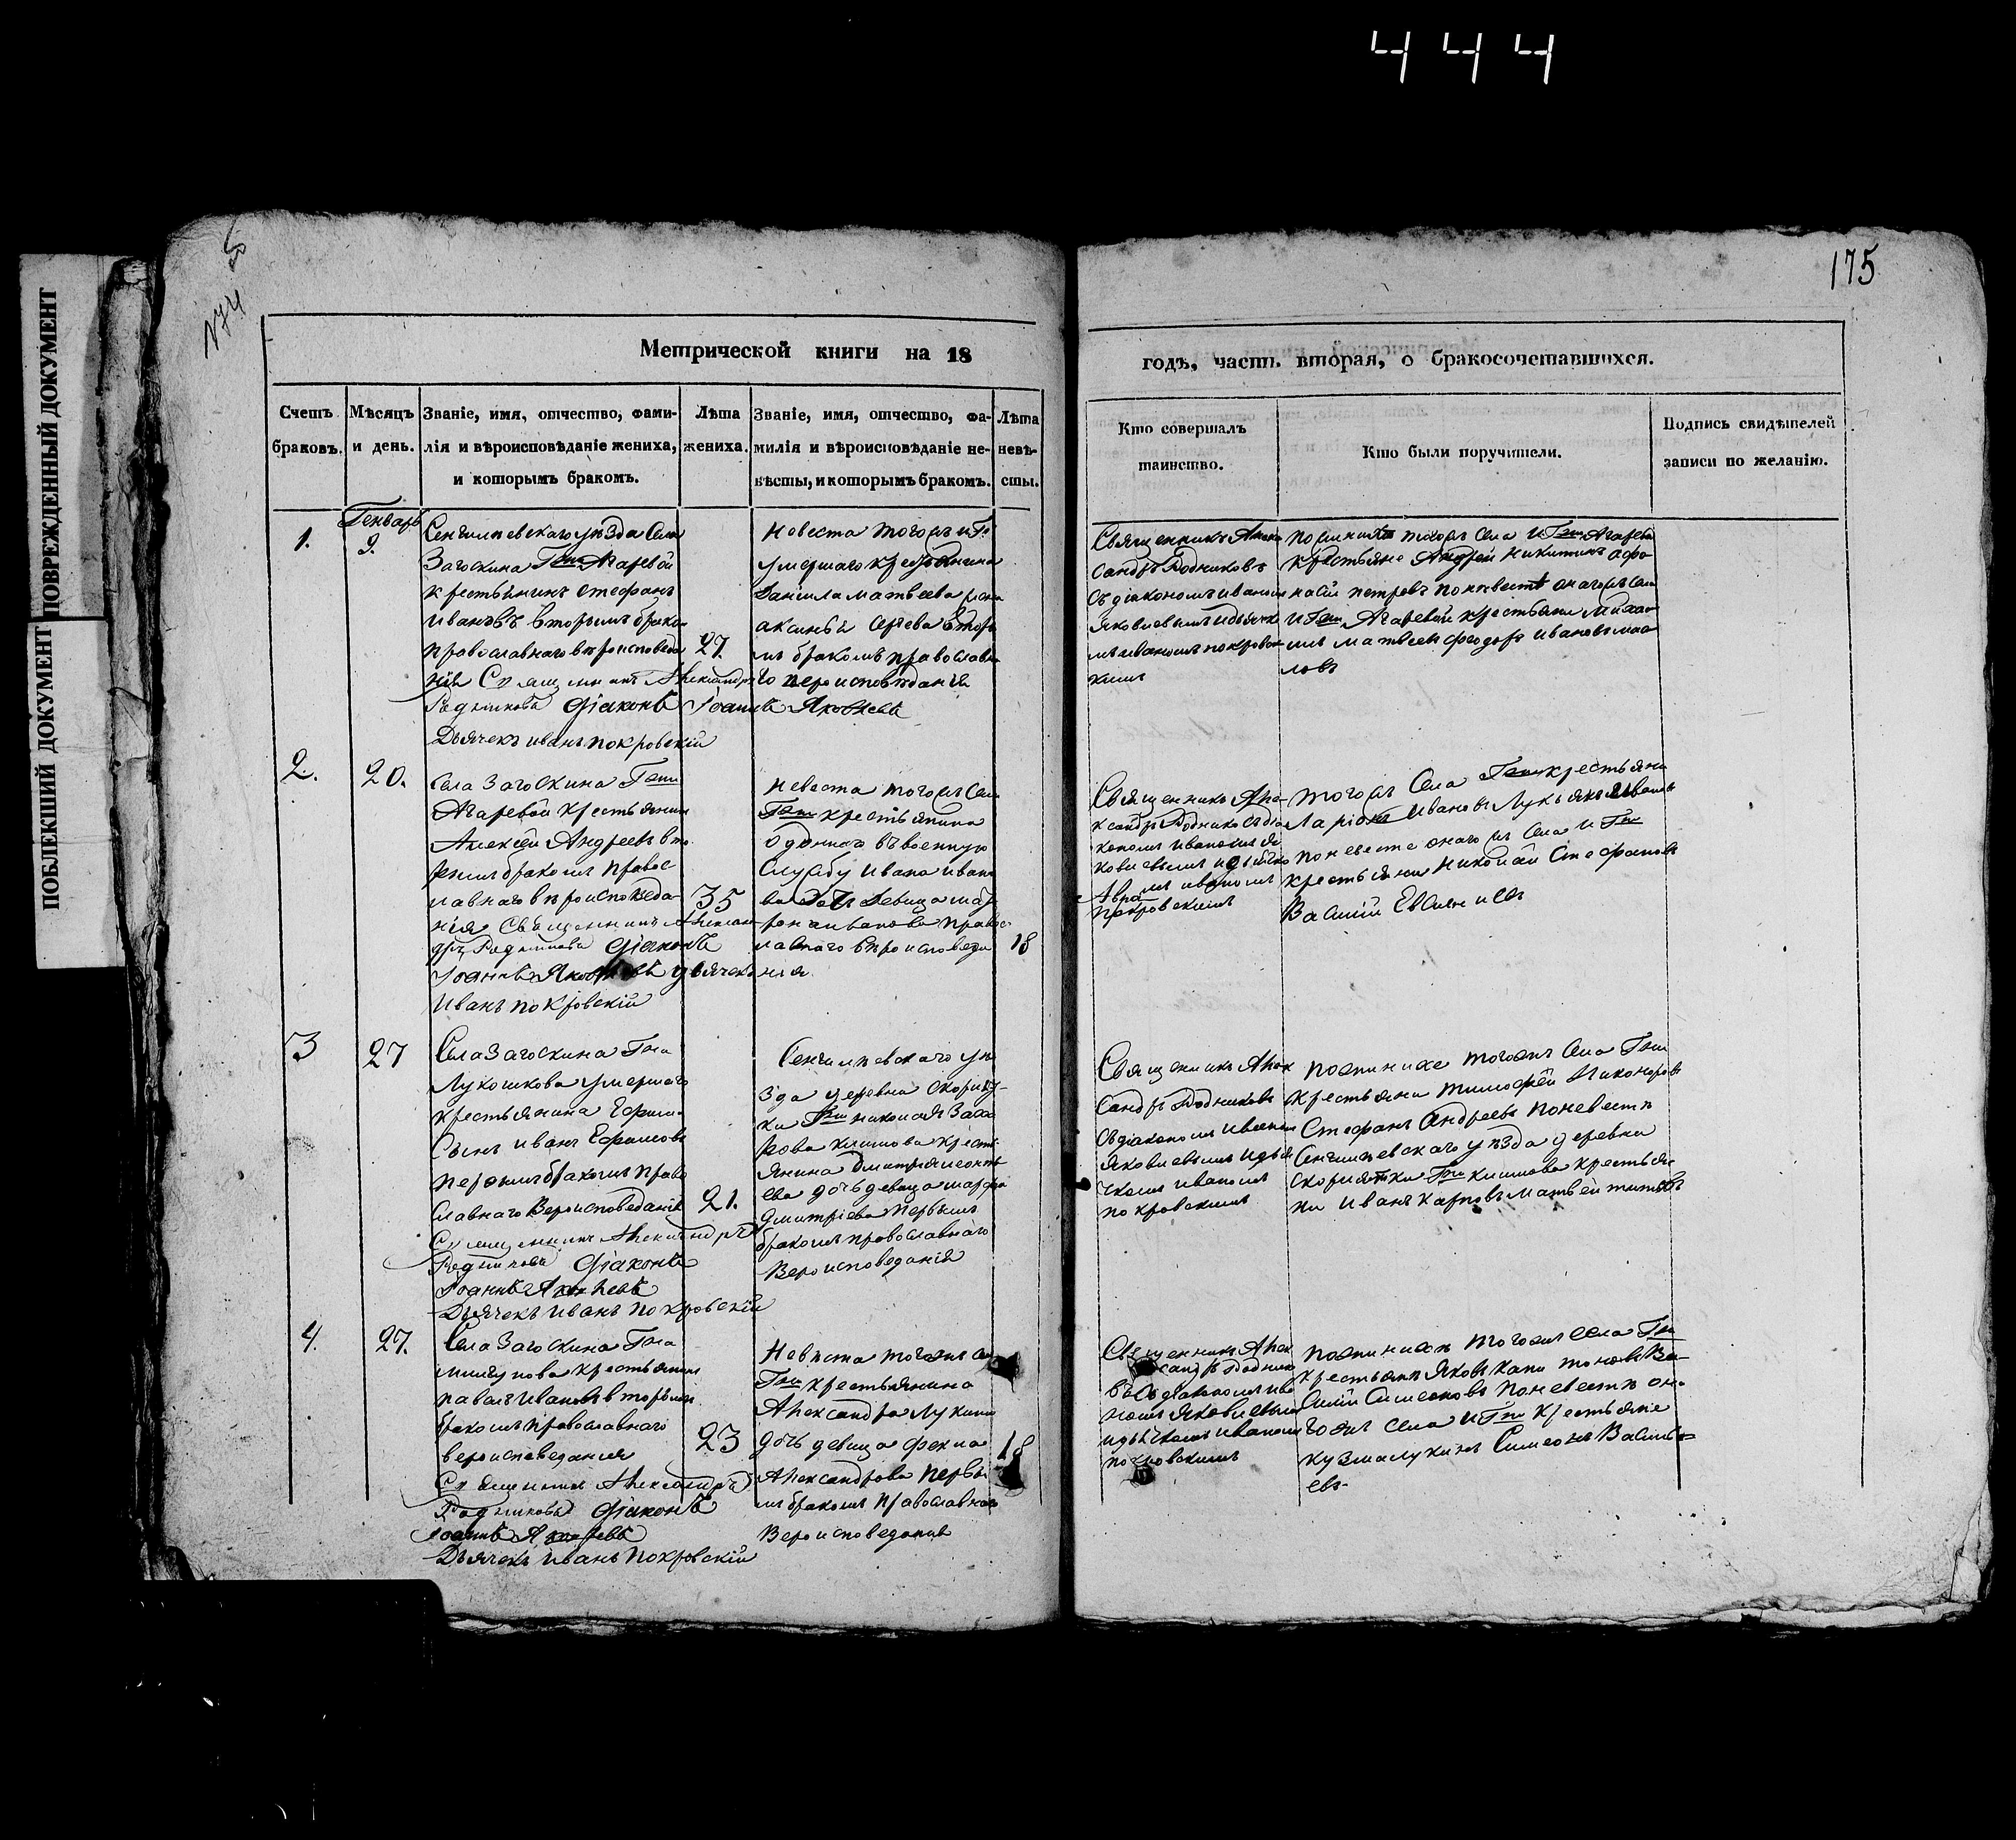 444
ПОВРЕЖДЕННЫЙ ДОКУМЕНТ
ПОБЛЕКШИЙ ДОКУМЕНТ
174
175
Метрической книги на 18
годъ, часть вторая, о бракосочетавшихся.
Счетъ браковъ.
Мѣсяцъ и день.
Званіе, имя, отчество, фами-
лія и вѣроисповѣданіе жениха,
и которымъ бракомъ.
Лѣта
жениха.
Званіе, имя, отчество, фа-
милія и вѣроисповѣданіе не-
вѣсты, и которымъ бракомъ.
Лѣта
невѣ-
сты.
Кто совершалъ
таинство.
Кто были поручители.
Подпись свидѣтелей
записи по желанію.
1.
Генварь
9.
Сенгилѣевскаго уѣзда Села
Загоскина Гжи Агаревой
крестьянинъ Стефанъ
Ивановъ вторымъ брако
православнаго вѣроисповеда
нія Священникъ Александръ
Родниковъ Діаконъ Іоаннъ Яковлевъ
Дьячекъ иванъ покровскій
27
Невеста тогожъ и Гж
умершаго крестьянина
Данила матвеева жена
аксинья Сергева вторы
мъ бракомъ православна
го вероисповѣданія
Священникъ Алек
сандръ Родниковъ
съ діакономъ иваномъ
Яковлевымъ и дьячко
мъ иваномъ покровс
кимъ
по женихѣ тогожъ Села и Гжи Агаревой
крестьяне Андрей Никитинъ афо
насій петровъ по невестѣ онагожъ Села
и Гжи Агаревой крестьяни Михаи
лъ матвеевъ феодоръ ивановъ мас
ловъ
2.
20.
Села Загоскина Гжи
Агаревой крестьянинъ
Алексѣй Андреевъ вто
рымъ бракомъ правос
лавнаго вѣроисповѣда
нія Священникъ Алексан
дръ Родниковъ Діаконъ
Іоаннъ Яковлевъ дьячекъ
Иванъ покровскій
35
невеста тогожъ Села
Гжи крестьянина
отданнаго въ военную
Службу Ивана Ивано
ва дочь девица мат
рена иванова правос
лавнаго вѣроисповеда
нія
18
Священникъ Але-
ксандръ Родниковъ съ діа
кономъ иваномъ Я
ковлевымъ и дьячко
мъ иваномъ
покровскимъ
тогожъ Села Гжи крестьяни
Ларіонъ Ивановъ Лукьянъ Ивановъ
по невесте онагожъ Села и Гжи
крестьяни Николай Стефановъ
Василій Евсигнеевъ
3
27
Села Загоскина Гжи
Лукошкова умершаго
крестьянина Ефима
Сынъ иванъ Ефимовъ
первымъ бракомъ право
славнаго Вероисповеданія
Священникъ Александръ
Родниковъ Діаконъ
Іоаннъ Яковлевъ
Дьячекъ Иванъ покровскій
21.
Сенгилѣевскаго уѣ
зда деревни
ки Гжи николая Заха
рова климова крестъ
янина Дмитрія леонть
ева дочь девица марфа
Дмитріева первымъ
бракомъ православнаго
Вероисповеданія
Священникъ Алек
сандръ Родниковъ
съ діакономъ иваномъ
яковлевымъ и дья
чкомъ иваномъ
покровскимъ
по женихе тогожъ Села Гжи
крестьяни тимофѣй Никоноровъ
Стефанъ Андреевъ по невестѣ
Сенгилѣевскаго уѣзда деревни
Гжи климова крестьяни
ни иванъ карповъ матвей титовъ
4.
27.
Села Загоскина Гжи
крестьянинъ
павелъ ивановъ вторымъ
бракомъ православнаго
вероисповедания
Священникъ Александръ
Родниковъ Діаконъ
Іоаннъ Яковлевъ
Дьячекъ иванъ Покровскій
23
Невѣста тогожъ Села
Гжи крестьянина
Александра Лукина
дочь девица фекла
Александрова первы
мъ бракомъ православнаго
Вероисповедания
18
Священникъ Алек
сандръ Родников
въ съ діакономъ ива
номъ Яковлевымъ
и дьячкомъ иваномъ
покровскимъ
по женихѣ тогожъ села Гжи
крестьянѣ Яковъ капитоновъ Ва-
силій Симеоновъ по невестѣ он-
гожъ села и Гжи крестьяне
кузма лукинъ Симеонъ Василь-
евъ-